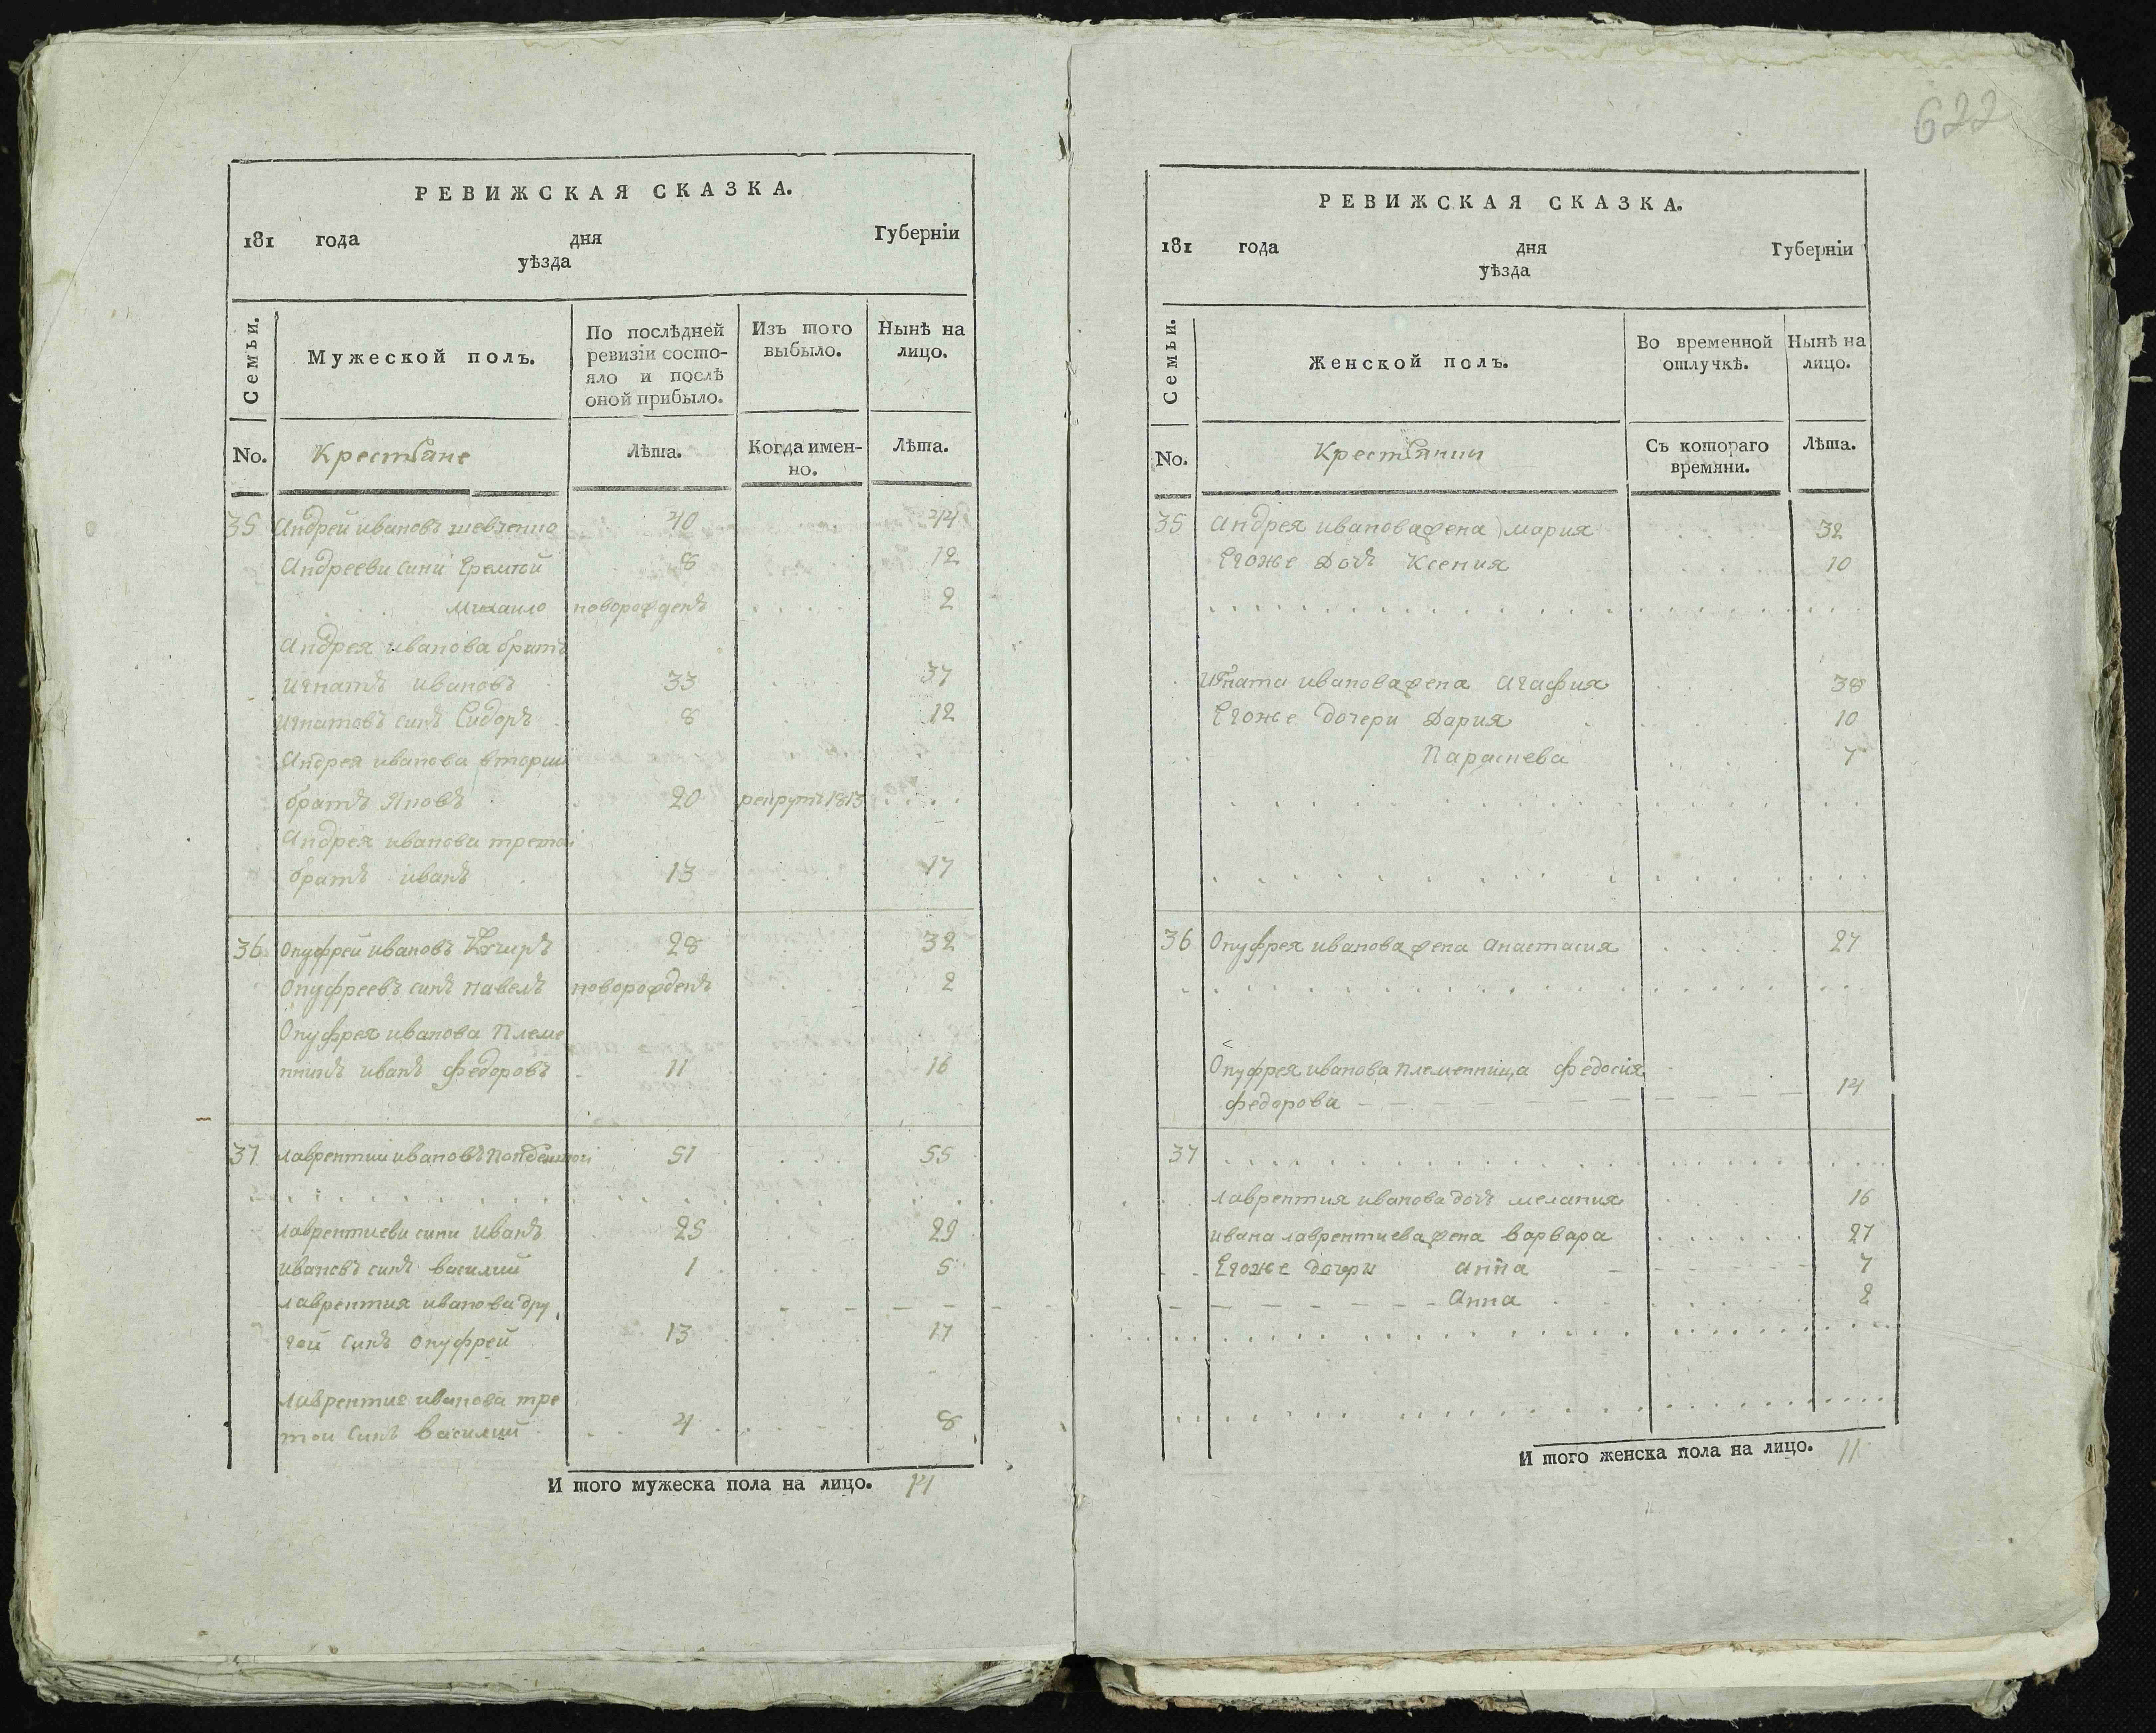 622
РЕВИЖСКАЯ СКАЗКА.
181 года дня Губерніи
уѣзда
Семьи. Мужеской полъ. По послѣдней ревизіи состояло и послѣ оной прибыло. Изъ того выбыло. Нынѣ на лицо.
No. Крестьяне Лѣта. Когда именно. Лѣта.
35 Андрей ивановъ шевченко 40 44
Андрееви сини Еремѣй 8 12
михаило новорожденъ 2
Андрея иванова братъ
игнатъ ивановъ 33 37
игнатовъ синъ Сидоръ 8 12
Андрея иванова вторий
братъ Яковъ 20 рекрутъ 1813
Андрея иванова третой
братъ иванъ 13 17
36 Онуфрей ивановъ 28 32
Онуфреевъ синъ павелъ новорожденъ 2
Онуфрея иванова племе
нникъ иванъ федоровъ 11 16
37 лаврентий ивановъ 51 55
лаврентиеви сини иванъ 25 29
ивановъ синъ василий 1 5
лаврентия иванова дру
гой синъ Онуфрей 13 17
лаврентия иванова тре
той синъ василий 4 8
И того мужеска пола на лицо. 14
РЕВИЖСКАЯ СКАЗКА.
181 года дня Губерніи
уѣзда
Семьи. Женской полъ. Во временной отлучкѣ. Нынѣ на лицо.
No. Съ котораго времяни. Лѣта.
35 Андрея иванова жена мария 32
Егоже дочъ Ксения 10
игната иванова жена Агафия 38
Егоже дочери Дария 10
Параскева 7
36 Онуфрея иванова жена Анастасия 27
Онуфрея иванова племенница федосия
федорова 14
37
лаврентия иванова дочъ мелания 16
ивана лаврентиева жена варвара 27
Егоже дочери Анна 7
Анна 2
И того женска пола на лицо. 11